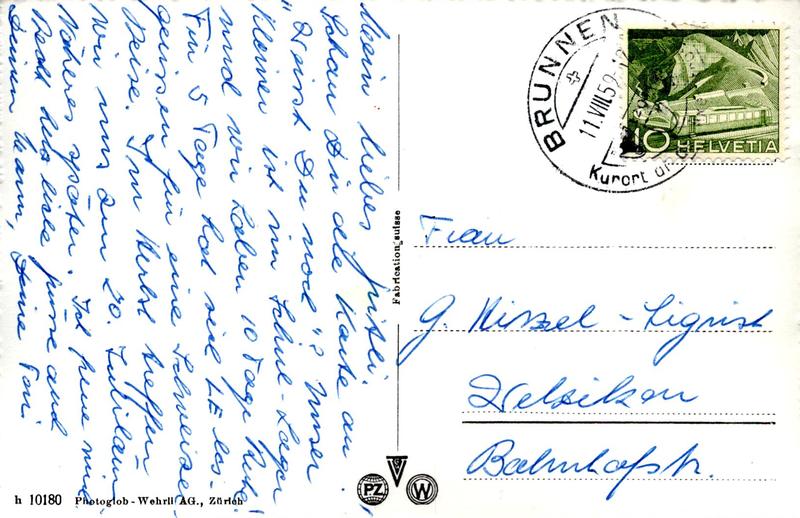 Mein liebes Gritli.
Schau Dir die Karte an.
"Weisst Du noch"? Unser
Kleiner ist im Schul-Lager
und wir haben 10 Tage Ruhe!
Für 5 Tage hat sich los-
gerissen für eine Schweizer-
Reise. Im Herbst treffen
wir uns am 20. Jubiläum
Näheres später. Ich freue mich
Recht herzliche Grüsse auch
Deinem Mann, Deine Toni.
BRUNNEN
11.VIII.52
Kurort
10 HELVETIA
Frau
G. Nissel-Sigrist
Wetzikon
Bahnhofstr.
Fabrication suisse
h 10180 Photoglob-Wehrli AG., Zürich
PZ
W